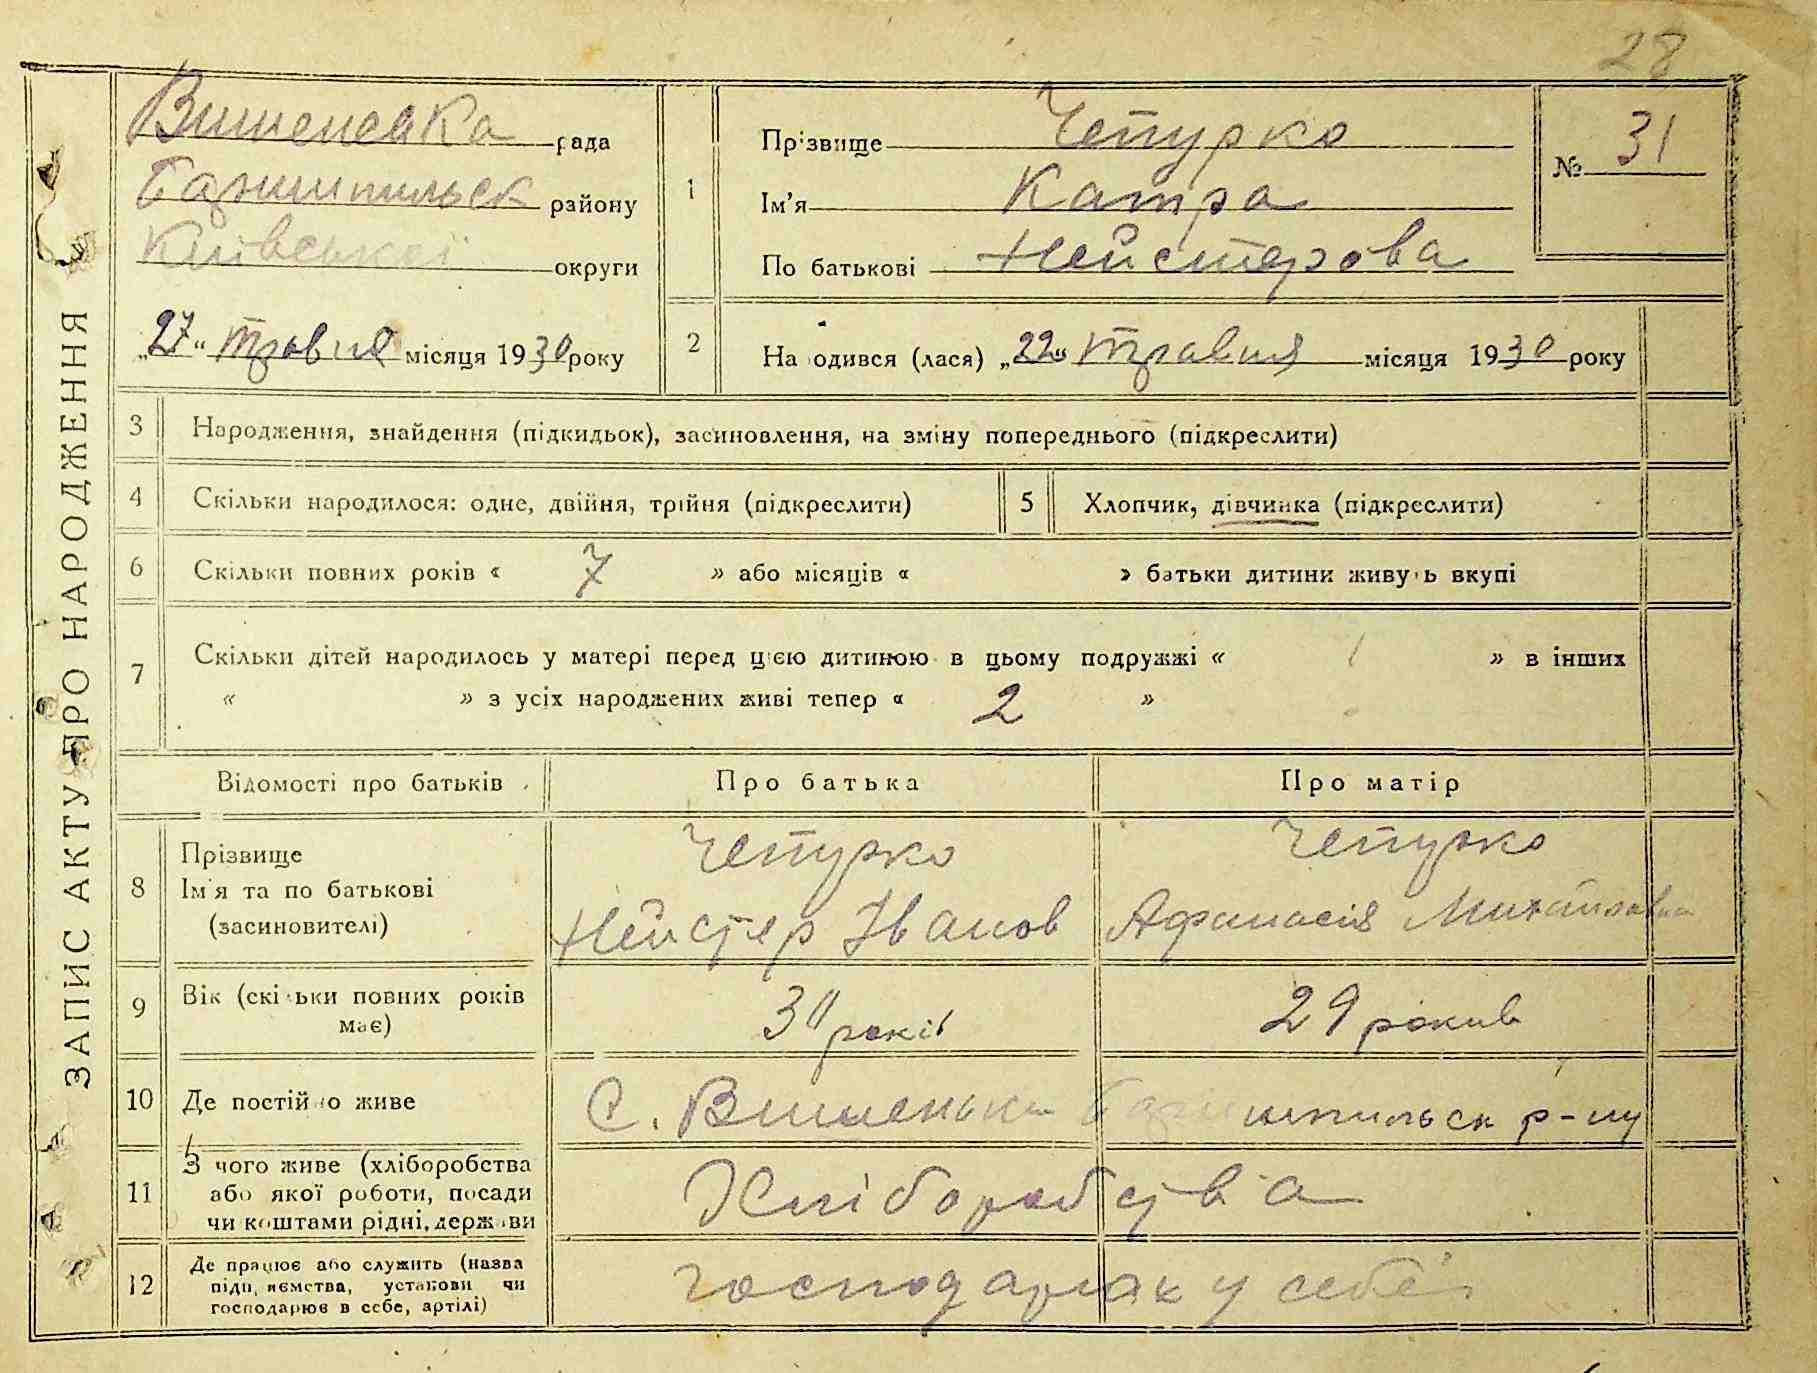 28
ЗАПИС АКТУ ПРО НАРОДЖЕННЯ
Вишенька рада
Баришпильск району
Київської округи
„27" травня місяця 1930 року
1
Прізвище Чепурко
Ім'я Катра
По батькові Нейстерова
№ 31
2
Народився (лася) „22" травня місяця 1930 року
3 Народження, знайдення (підкидьок), засиновлення, на зміну попереднього (підкреслити)
4 Скільки народилося: одне, двійня, трійня (підкреслити)
5 Хлопчик, дівчинка (підкреслити)
6 Скільки повних років « 7 » або місяців « » батьки дитини живуть вкупі
7 Скільки дітей народилось у матері перед цією дитиною в цьому подружжі « 1 » в інших
« » з усіх народжених живі тепер « 2 »
Відомості про батьків Про батька Про матір
8 Прізвище
Ім'я та по батькові
(засиновителі)
Чепурко
Нейстер Іванов
Чепурко
Афанасія Михайловна
9 Вік (скільки повних років
має)
років
29 років
10 Де постійно живе
С. Вишенька Баришпильск р-ну
11 З чого живе (хліборобства
або якої роботи, посади
чи коштами рідні, держави
Хліборобства
12 Де працює або служить (назва
підприємства, установи чи
господарює в себе, артілі)
у себе